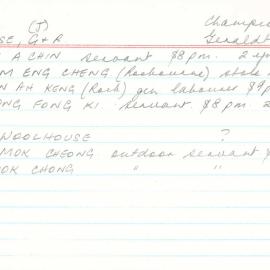 (J) Champio
SE, G & R Geraldt
A CHIN servant $8 pm. 2 ye
M ENG CHENG (Roebourne) stole
N AH KENG (Roeb) gen labourer $9
ONG FONG KI. servant. $8 pm 2
WOOLHOUSE ?
MOK CHEONG outdoor servant $
OK CHONG " "